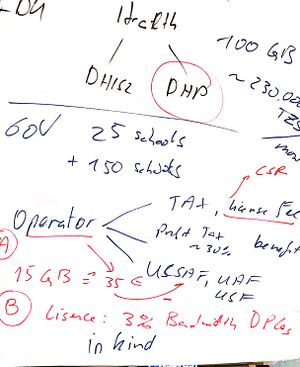 Health
100 GB
DHIS2 DHP
~ 230,00
TZS
GOV 25 schools
+ 150 schools
CSR
TAX, license Fee
Operator
Profit Tax benefit
~ 30%
A
USSAF, UAF
15 GB = 35 €
USF
B Lisence: 3% Bandwidth
in kind